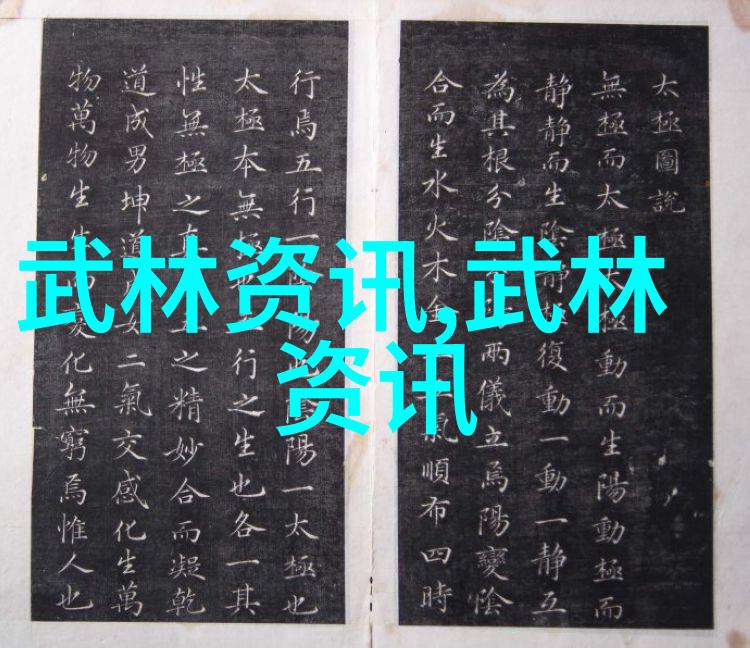 太極圖說
無極而太極太極動而生陽動極而
静静而生陰静極復動一動一静互
為其根分陰陽兩儀立焉陽變陰
合而生水火木金氣順布四時
行焉五行一陰陽也陰陽一太極也
太極本無極也行之生也各一其
性無極之真之精妙合而凝乾
道成男坤道女二氣交感化生萬
物萬物生生變化無窮焉惟人也
武林资讯,武林
资讯